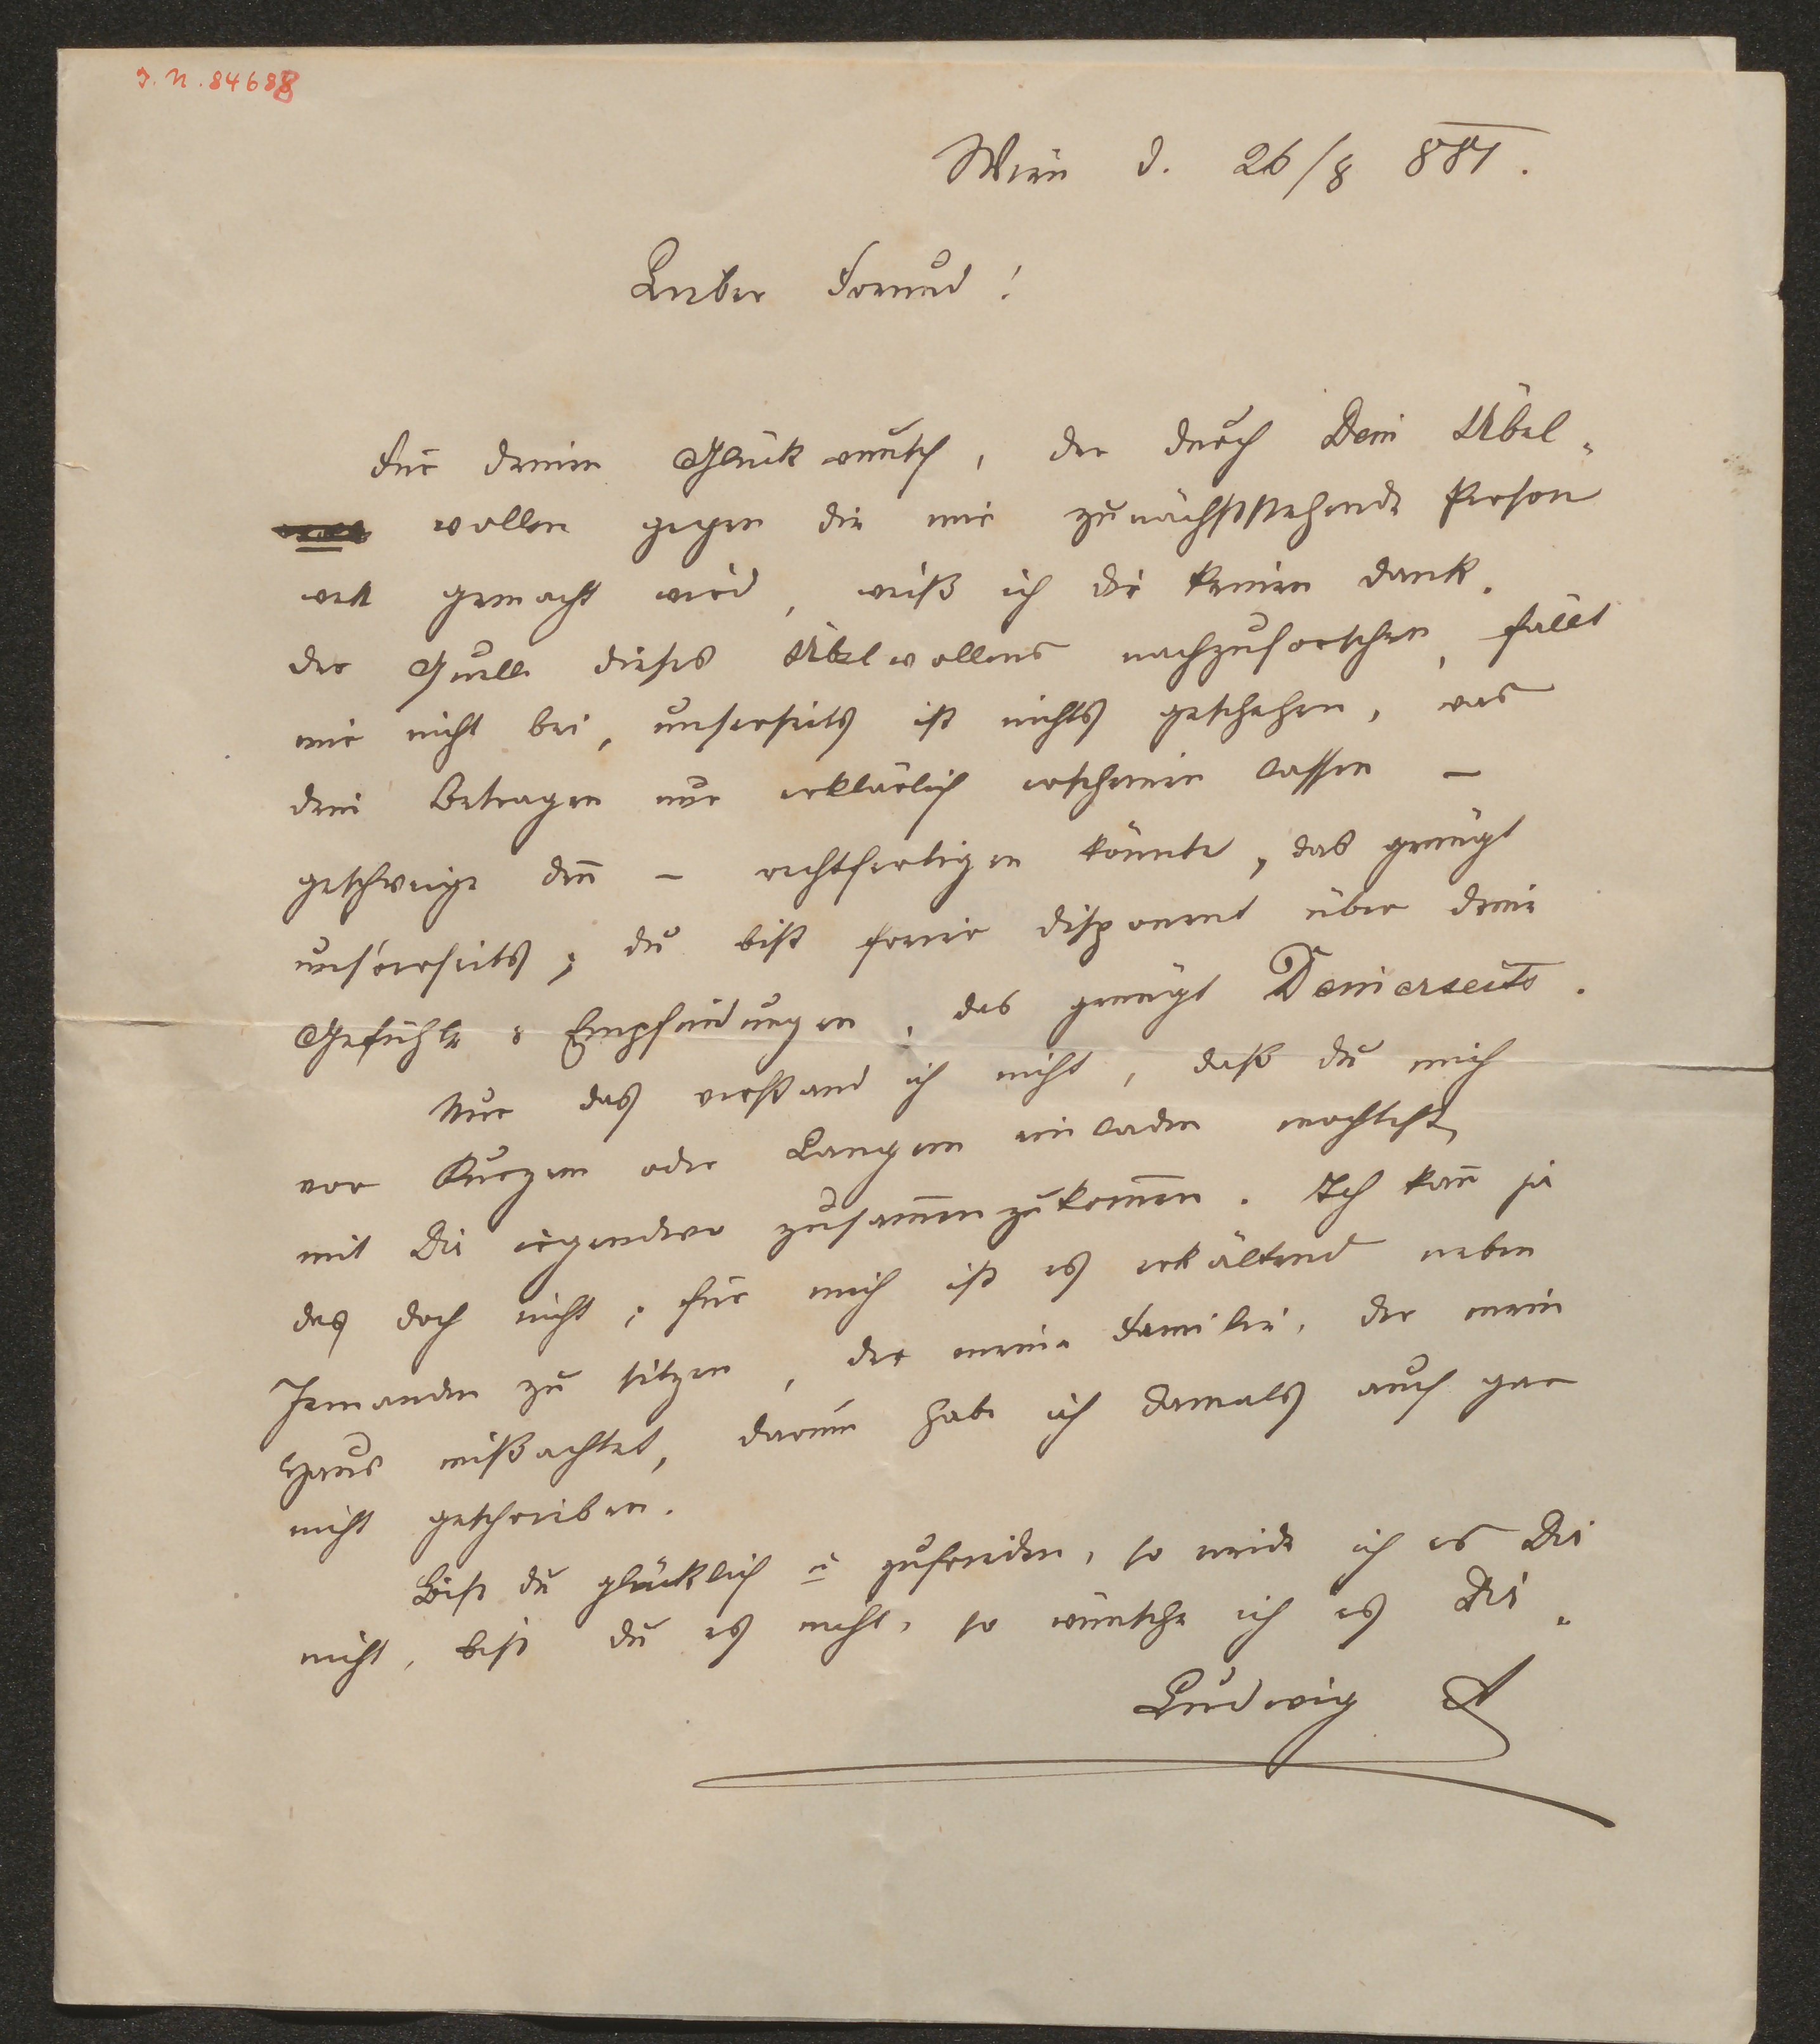 I. N. 84688
Wien d. 26/8 881.
Lieber Freund!
Für deinen Glückwunsch, der durch Dein Übel-
wollen gegen die mir zunächststehende Person
wett gemacht wird, weiß ich dir keinen Dank.
Der Quelle dieses Übelwollens nachzuforschen, fällt
mir nicht bei, unserseits ist nichts geschehen, was
dein Betragen nur erklärlich erscheinen lassen –
geschweige den̄ – rechtfertigen könnte, das genügt
unsererseits; du bist freier Disponent über deine
Gefühle & Empfindungen, das genügt Deinerseits.
Nur das verstand ich nicht, daß du mich
vor Kurzem oder Langem einladen mochtest,
mit Dir irgendwo zusam̄enzukom̄en. Ich kan̄ ja
das doch nicht; für mich ist es erkältend neben
Jemanden zu sitzen, der meine Familie, der mein
Haus mißachtet, darum habe ich damals auch gar
nicht geschrieben.
Bist du glücklich u zufrieden, so neide ich es Dir
nicht, bist du es nicht, so wünsche ich es Dir.
Ludwig A